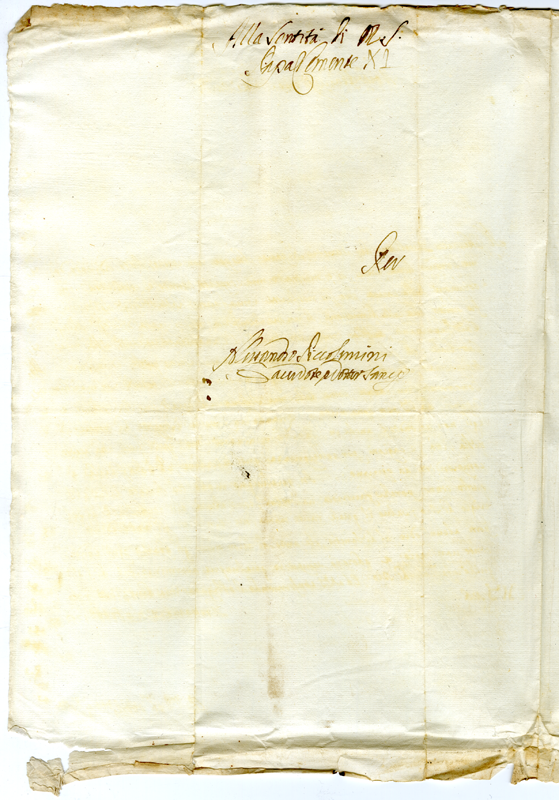 Alla Santità di N. S.
Papa Clemente XI
Per
Alessandro Piccolomini
Sacerdote e Dottor